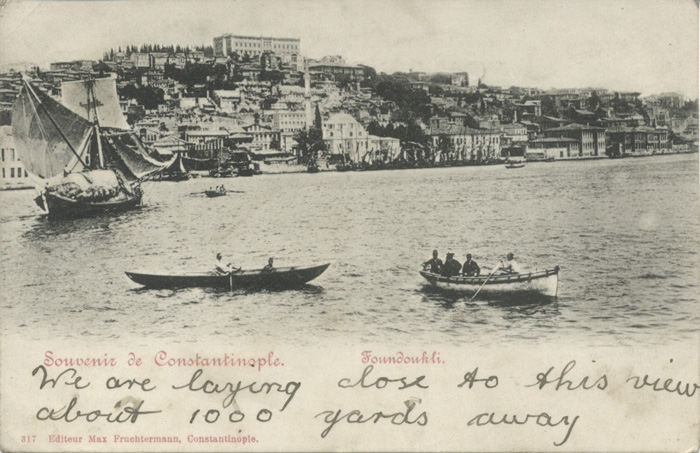 Souvenir de Constantinople. Foundoukli.
We are laying close to this view
about 1000 yards away
317 Editeur Max Fruchtermann, Constantinople.